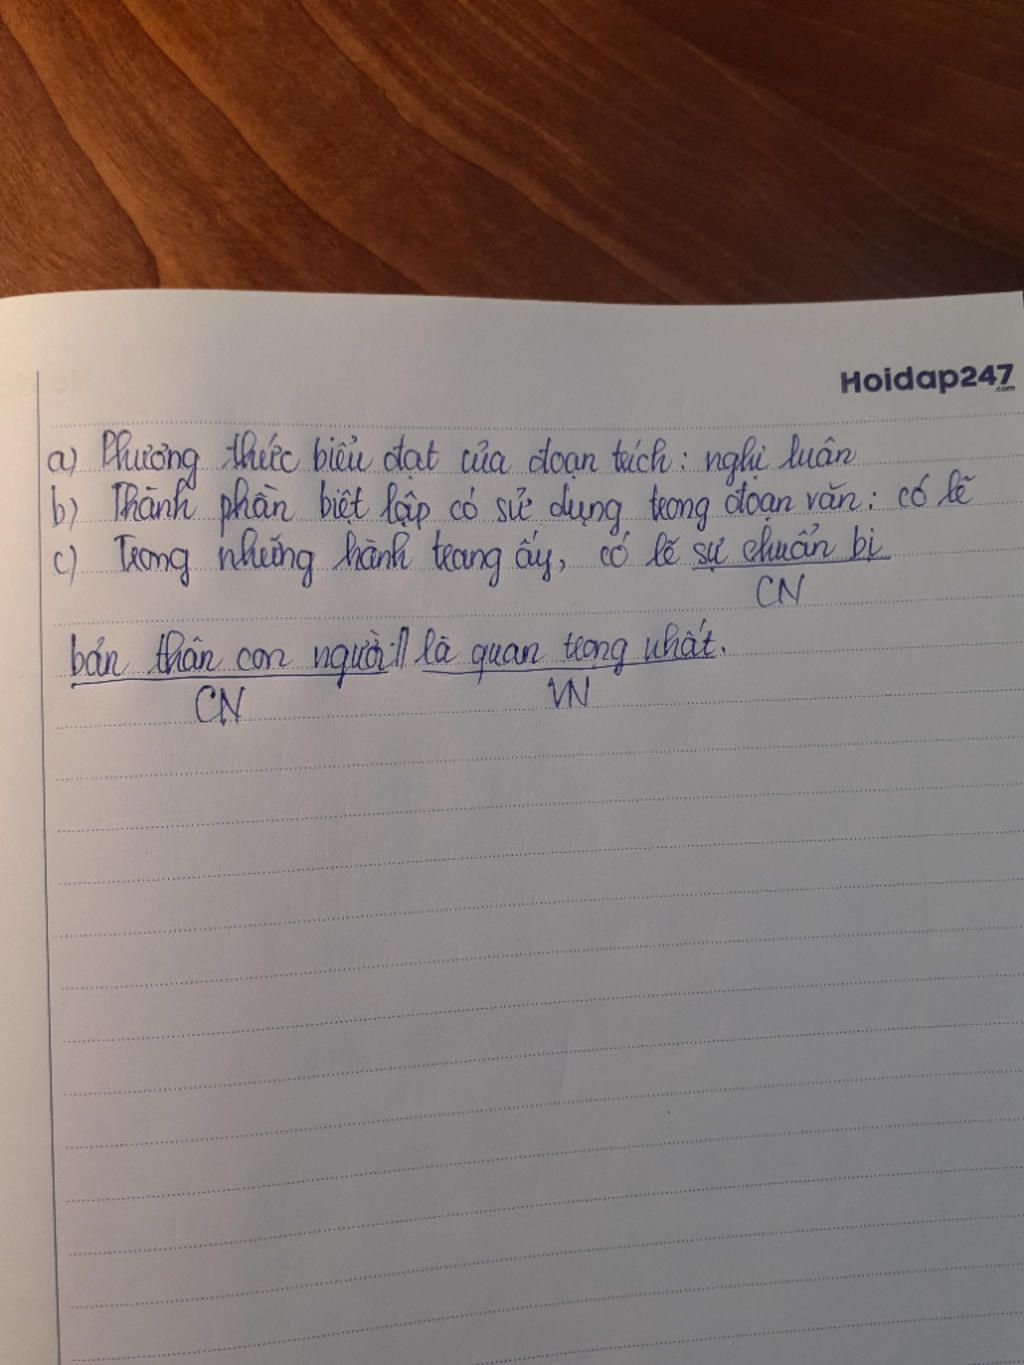 Hoidap247
.com
a) Phương thức biểu đạt của đoạn trích: nghị luân
b) Thành phần biệt lập có sử dụng trong đoạn văn: có lẽ
c) Trong những hành trang ấy, có lẽ sự chuẩn bị
CN
bản thân con người // là quan trọng nhất.
CN VN